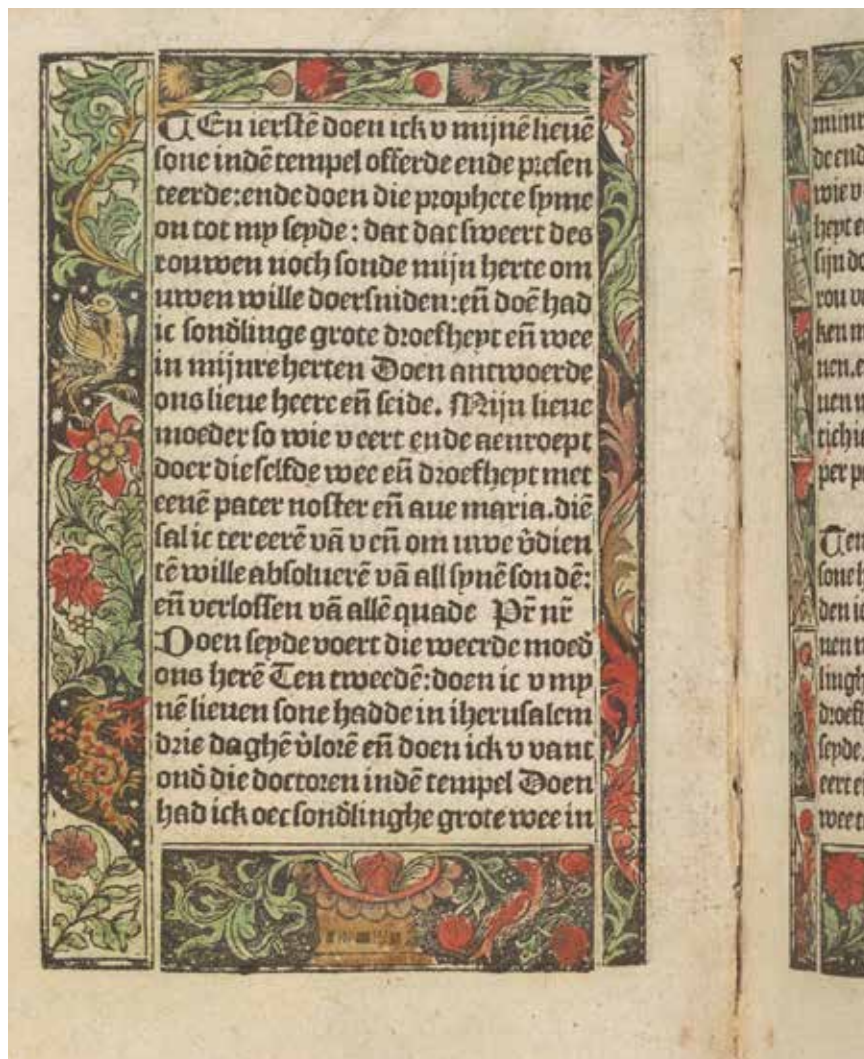 TEn ierstē doen ick v mijnē lieuē
sone indē tempel offerde ende presen
teerde: ende doen die prophete syme
on tot my seyde: dat dat sweert des
rouwen noch soude mijn herte om
uwen wille doersniden: eñ doē had
ic sondlinge grote droefheyt eñ wee
in mijnre herten Doen antwoerde
ons lieue heere eñ seide. Mijn lieue
moeder so wie v eert ende aenroept
doer die selfde wee eñ droefheyt met
eenē pater noster eñ aue maria. diē
sal ic ter eerē vā v eñ om uwe v̄dien
tē wille absoluerē vā all synē sondē:
eñ verlossen vā allē quade Pr̄ nr̄
Doen seyde voert die weerde moed̄
ons herē Ten tweedē: doen ic v my
nē lieuen sone hadde in iherusalem
drie daghē v̄lorē eñ doen ick v vant
ond̄ die doctoren indē tempel Doen
had ick oec sond̄linghe grote wee in
de end
wie v
heyt e
sijn do
rou v
ken m
nen. e
nen
per p
Ten
sone h
den i
nen
lingh
droef
seyde.
eert e
wee